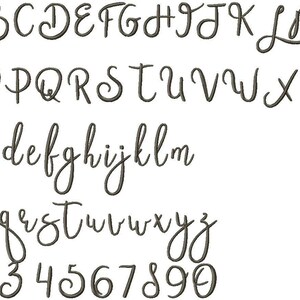 BCDEFGHIJKL
PQRSTUVWX
defghijklm
qrstuvwxyz
34567890